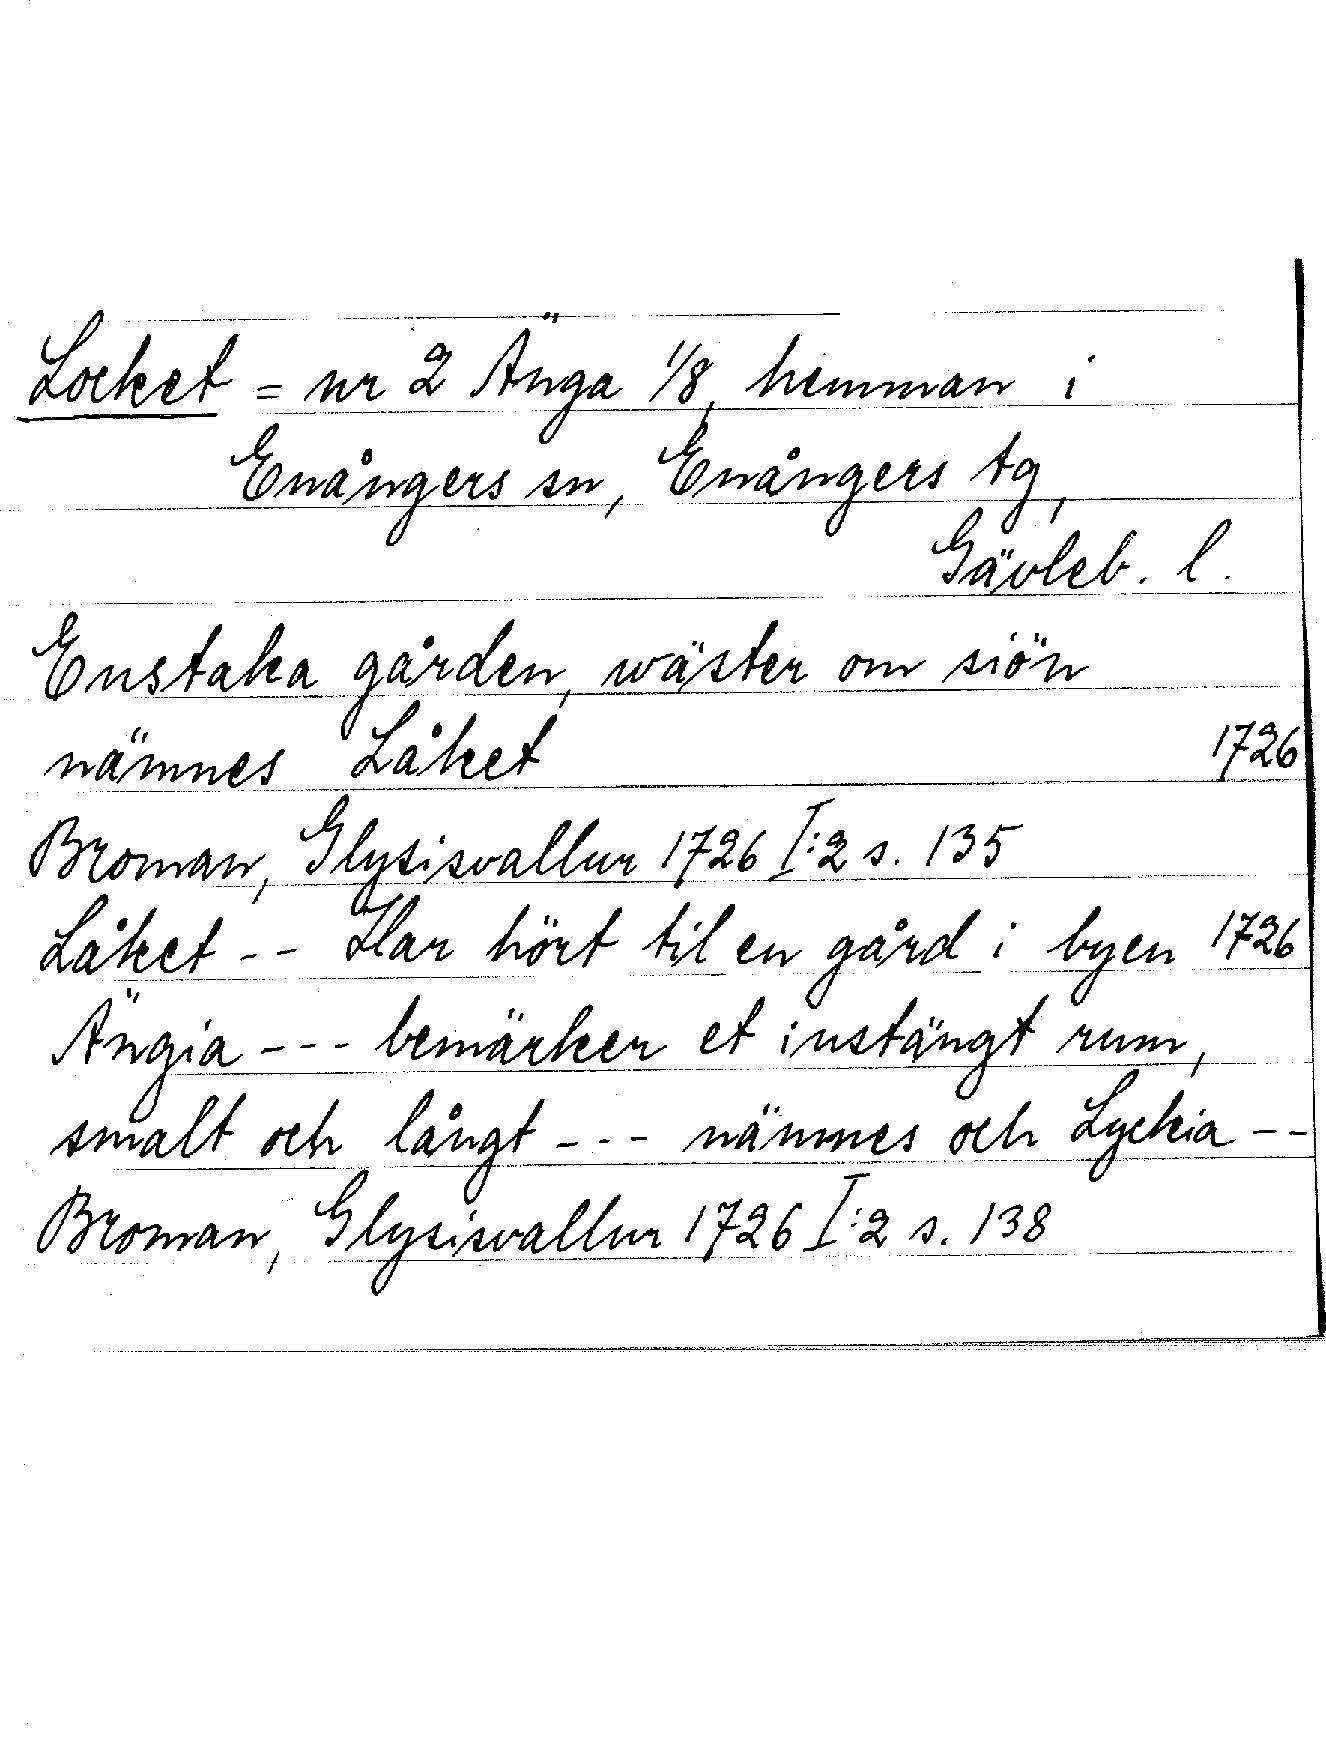 Locket = nr 2 Änga 1/8, hemman i
Enångers sn, Enångers tg,
Gävleb. l.
Enstaka gården, wäster om siön
nämnes Låket 1726
Broman, Glysisvallur 1726 I:2 s. 135
Låket -- Har hört til en gård i byen 1726
Ängia --- bemärker et instängt rum,
smalt och långt --- nämnes och Lyckia --
Broman, Glysisvallur 1726 I:2 s. 138